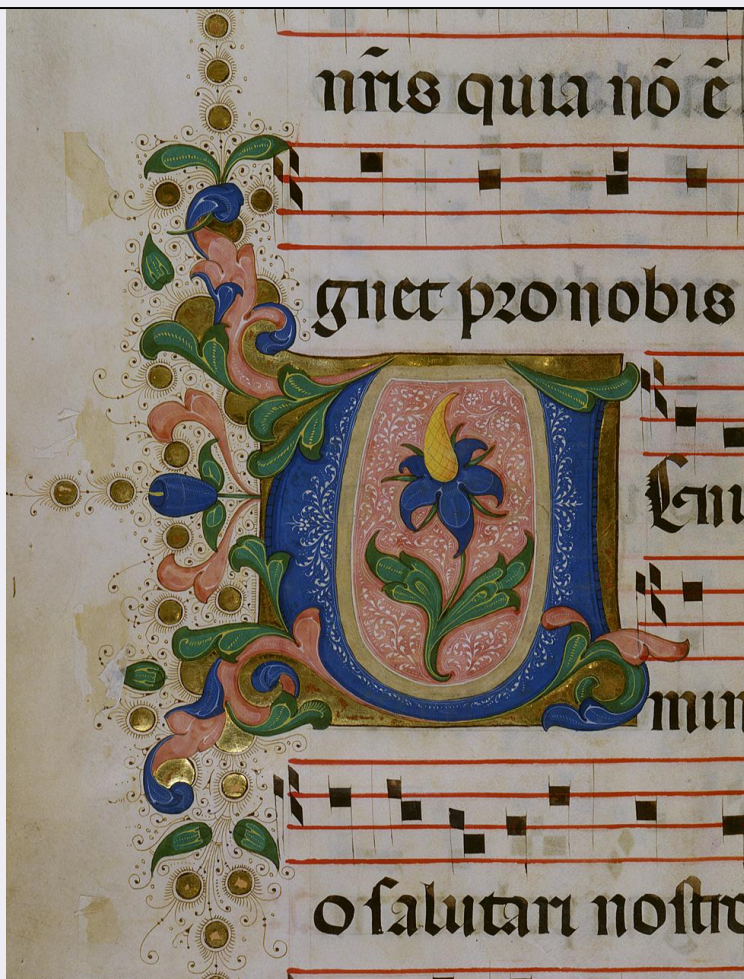 nr̃is quia nõ ẽ
gnet pro nobis
UEni
min
o salutari nostro